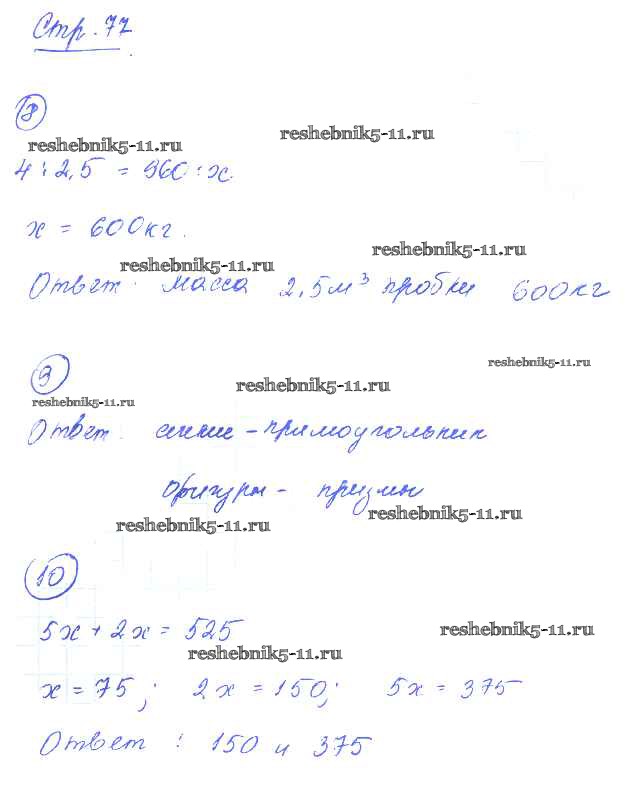 Стр. 77
8
reshebnik5-11.ru
reshebnik5-11.ru
4 : 2,5 = 960 : x.
x = 600кг.
reshebnik5-11.ru
reshebnik5-11.ru
Ответ: масса 2,5м³ пробки 600кг
9
reshebnik5-11.ru
reshebnik5-11.ru
reshebnik5-11.ru
Ответ: синие - прямоугольник
фигуры - призмы
reshebnik5-11.ru
reshebnik5-11.ru
10
5x + 2x = 525
reshebnik5-11.ru
reshebnik5-11.ru
x = 75; 2x = 150; 5x = 375
Ответ : 150 и 375